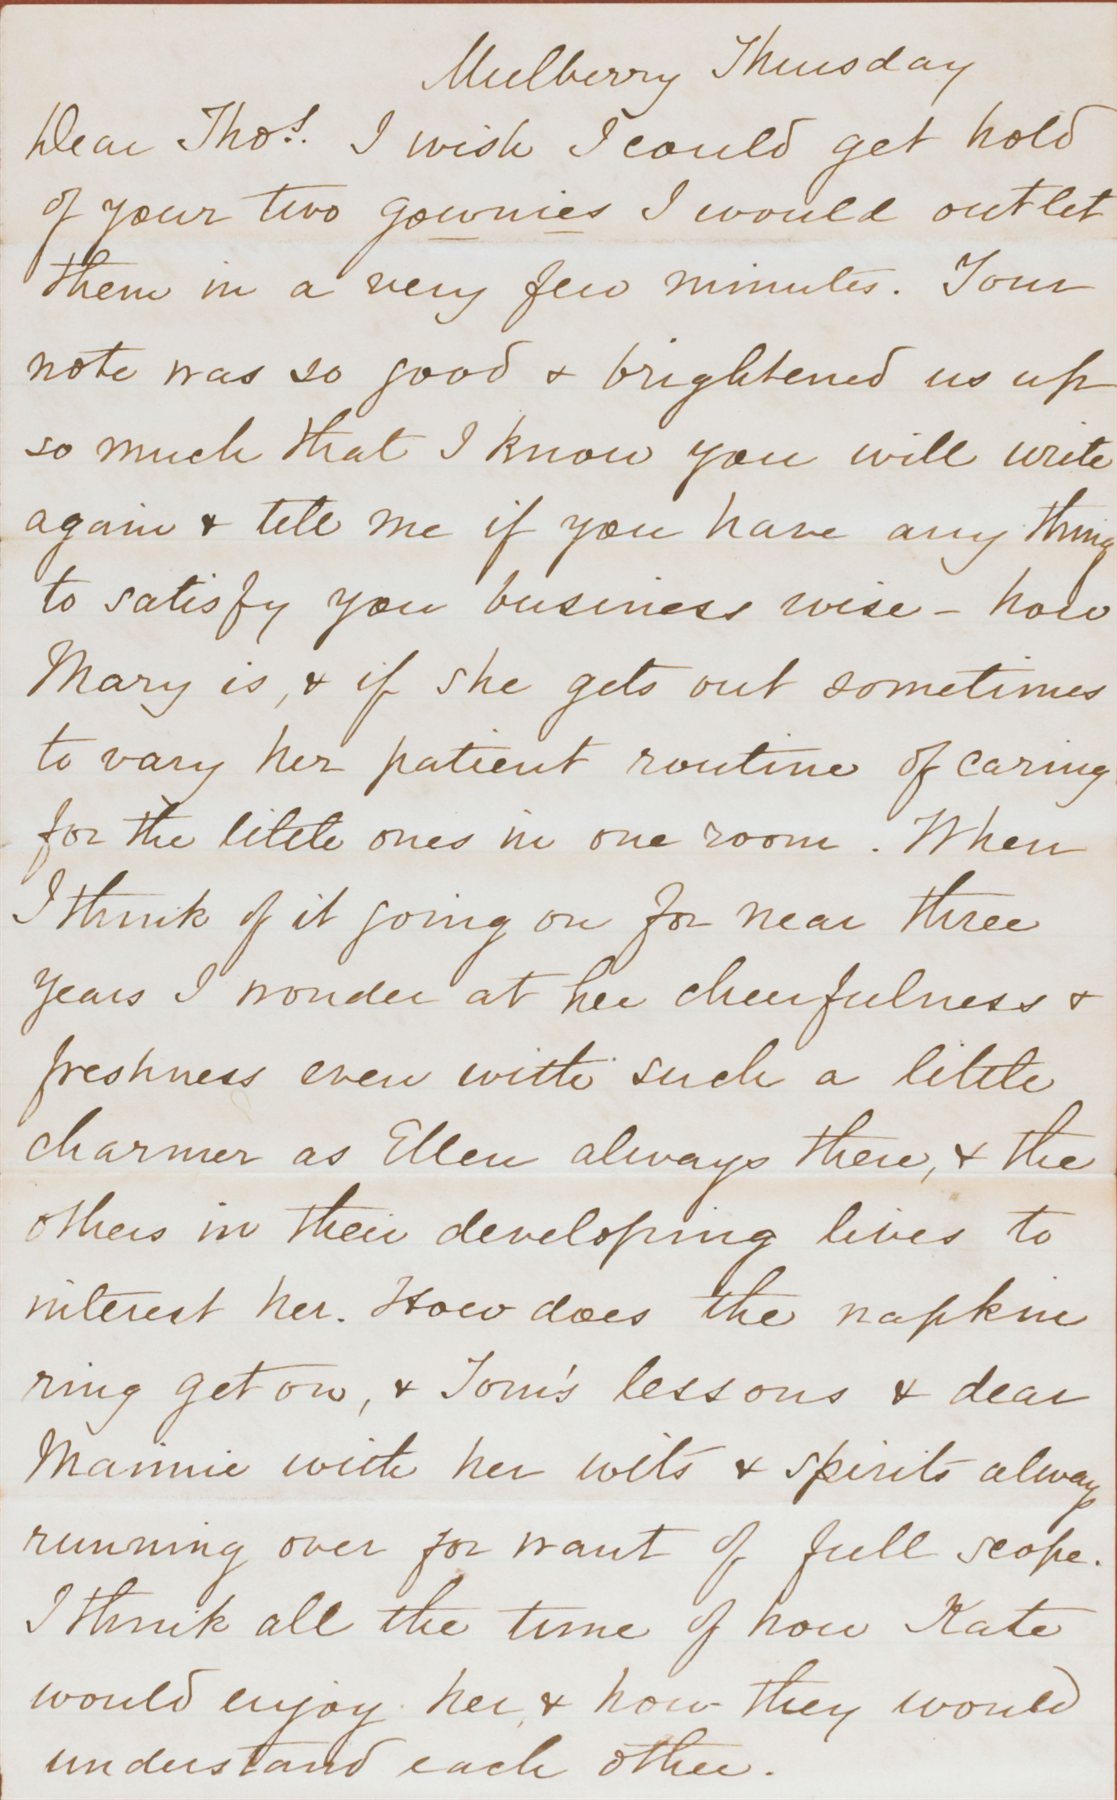 Mulberry Thursday
Dear Thos. I wish I could get hold
of your two gownies I would outlet
them in a very few minutes. Your
note was so good & brightened us up
so much that I know you will write
again & tell me if you have any thing
to satisfy you business wise - how
Mary is, & if she gets out sometimes
to vary her patient routine of caring
for the little ones in one room. When
I think of it going on for near three
years I wonder at her cheerfulness &
freshness even with such a little
charmer as Ellen always there, & the
others in their developing lives to
interest her. How does the napkin
ring get on, & Tom's lessons & dear
Mannie with her wits & spirits always
running over for want of full scope.
I think all the time of how Kate
would enjoy her & how they would
understand each other.